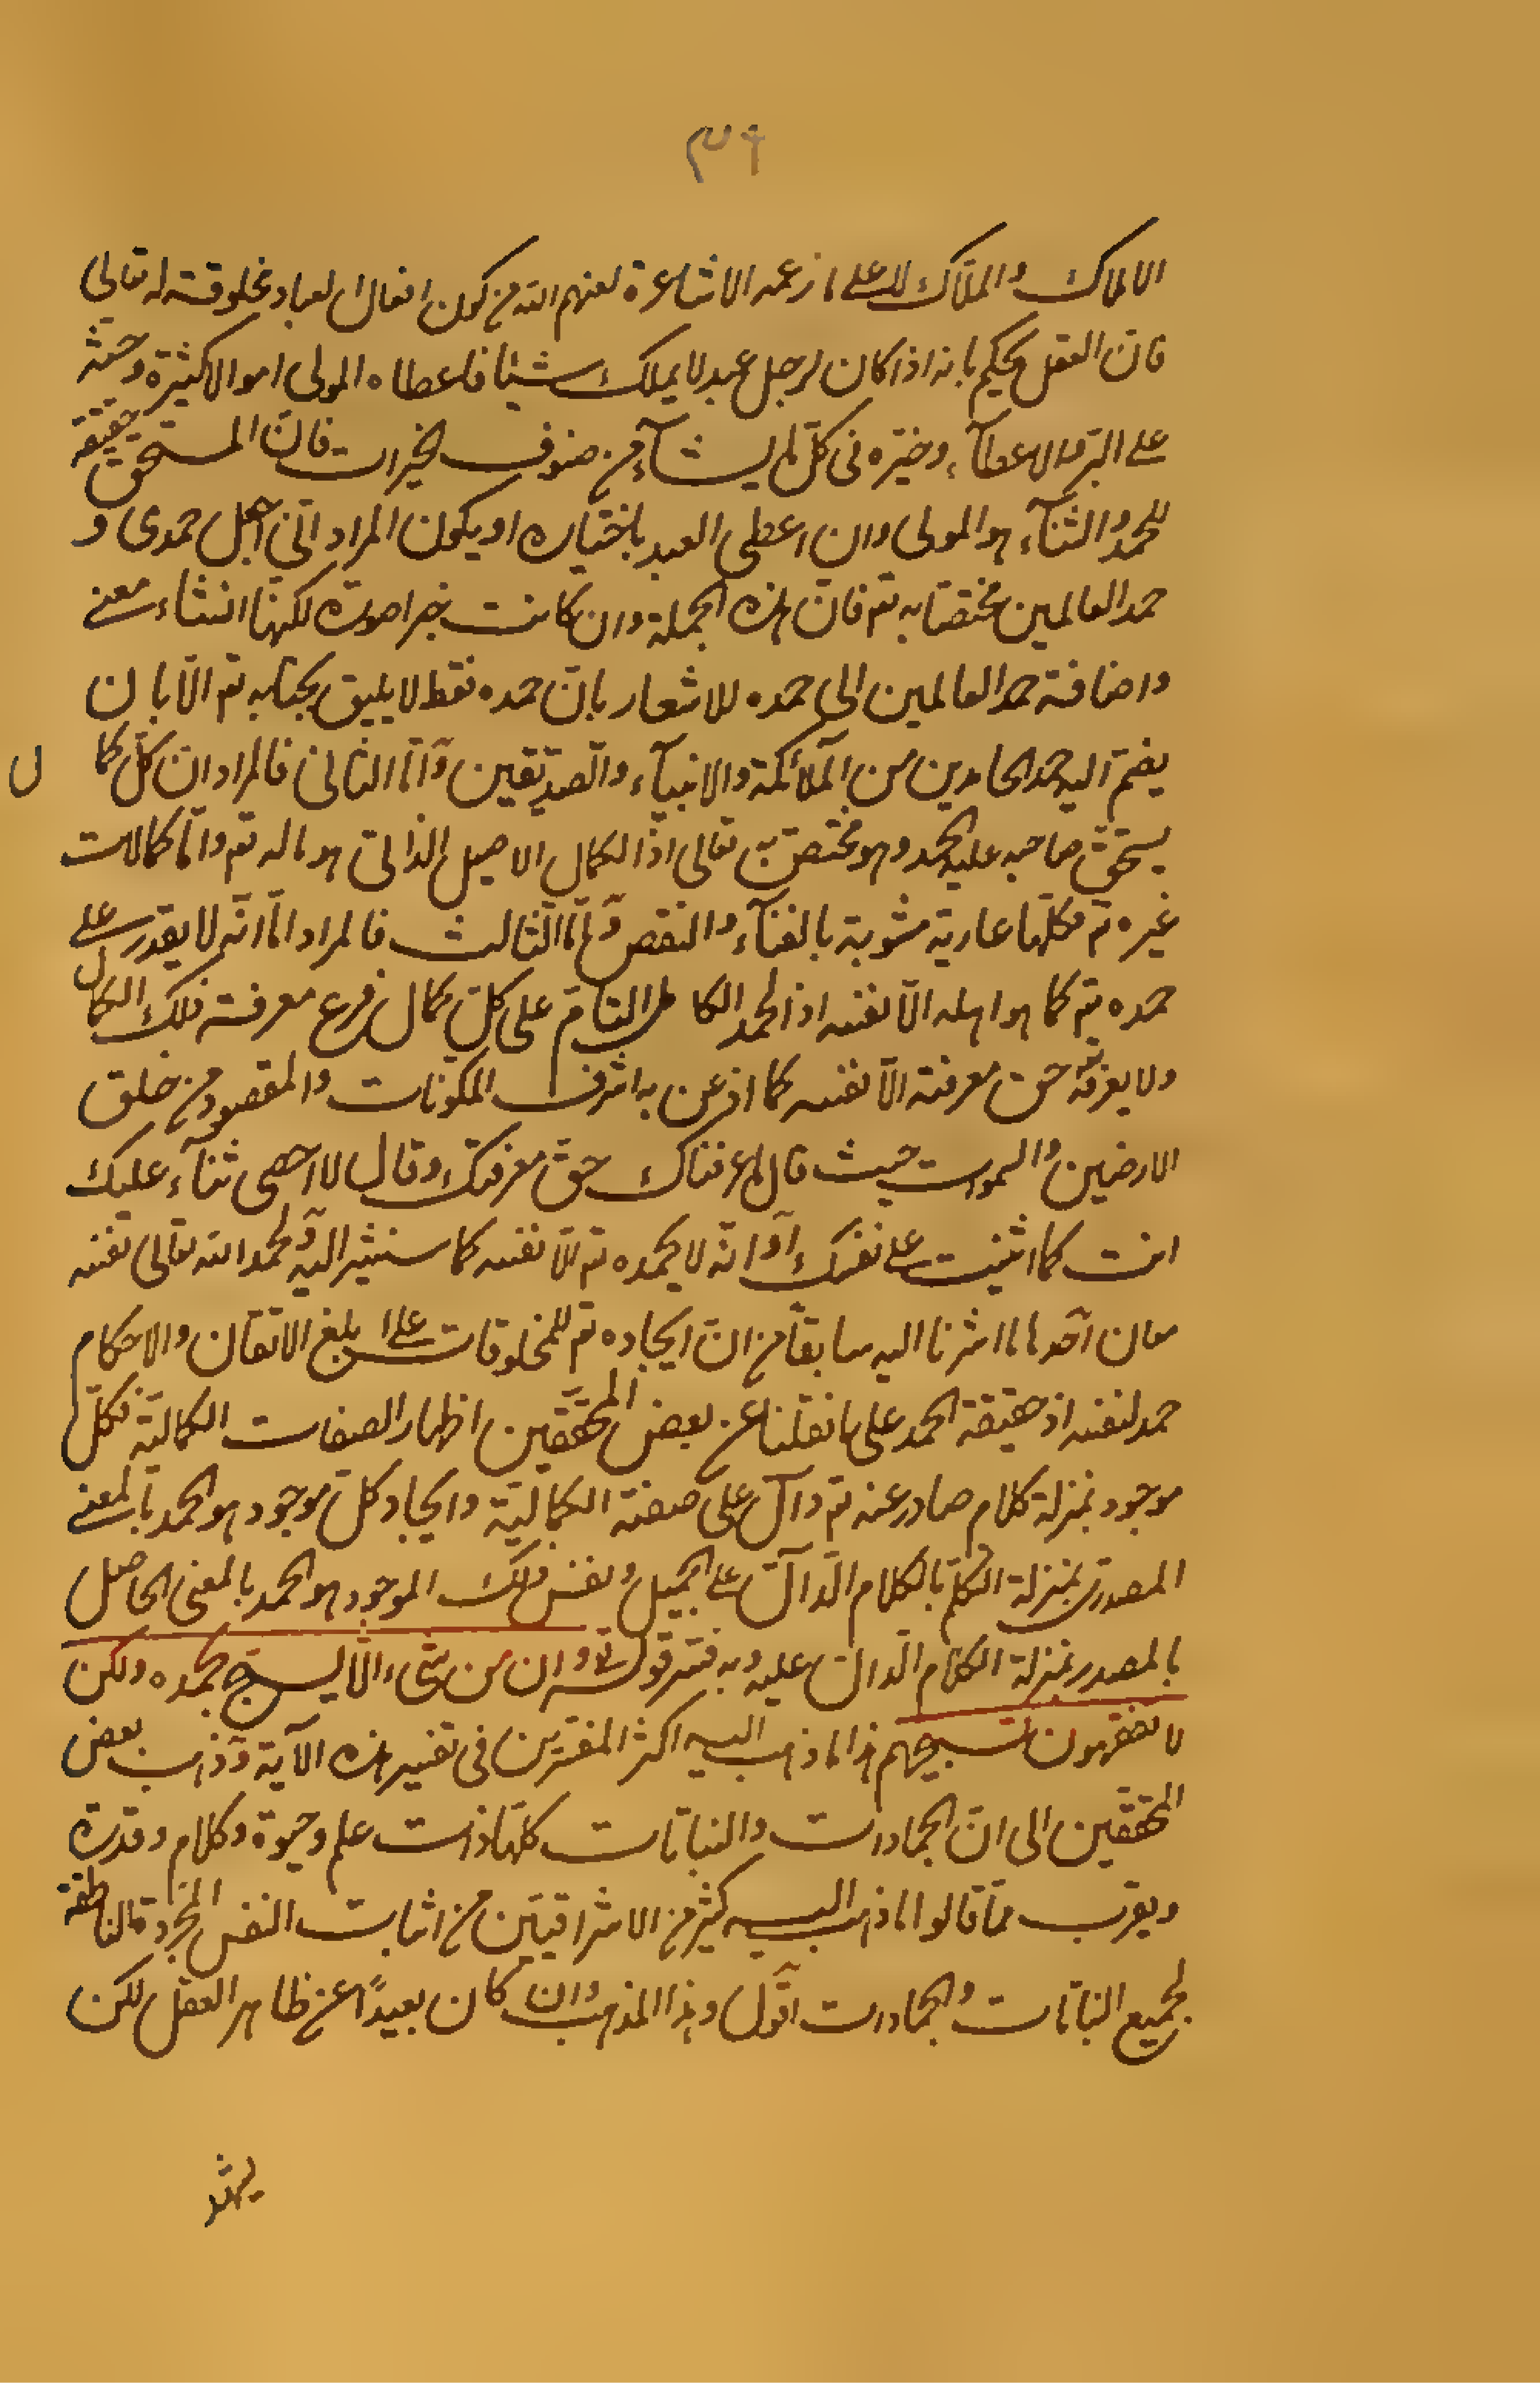 ٣٦
الاملاك والملاك لا على ما زعمه الاشاعرة لعنهم الله من كون افعال العباد مخلوقة له تعالى
فان العقل يحكم بانه اذا كان لرجل عبد لا يملك شيئا فاعطاه المولى اموالا كثيرة وحثه
على البر والاعطآء وخيره فى كل ما يشآء من صنوف الخيرات فان المستحق حقيقة
للحمد والثنآء هو المولى وان اعطى العبد باختياره او يكون المراد انى اجعل حمدى و
حمد العالمين مختصا به تع فان هذه الجملة وان كانت خبرا صورة لكنها انشاء معنى
واضافة حمد العالمين الى حمده للاشعار بان حمده فقط لا يليق بجنابه تع الا بان
يضم اليه حمد الحامدين من الملائكة والانبيآء والصديقين واما الثانى فالمراد ان كل كما
ل
يستحق صاحبه عليه الحمد وهو مختص به تعالى اذ الكمال الاصيل الذاتى هو ماله تع واما كمالات
غيره تع فكلها عارية مشوبة بالفنآء والنقص واما الثالث فالمراد اما انه لا يقدر على
حمده تع كما هو اهله الا نفسه اذ الحمد الكامل التام على كل كمال فرع معرفة ذلك الكمال
ولا يعرفه حق معرفته الا نفسه كما اذعن به اشرف المكونات والمقصود من خلق
الارضين والسموات حيث قال ما عرفناك حق معرفتك وقال لا احصى ثنآء عليك
انت كما اثنيت على نفسك او انه لا يحمده تع الا نفسه كما سنشير اليه ولحمد الله تعالى نفسه
معان احدها ما اشرنا اليه سابقا من ان ايجاده تع للمخلوقات على ابلغ الاتقان والاحكام
حمد لنفسه اذ حقيقة الحمد على ما نقلنا عن بعض المحققين اظهار الصفات الكمالية فكل
موجود بمنزلة كلام صادر عنه تع دآل على صفته الكمالية وايجاد كل موجود هو الحمد بالمعنى
المصدرى بمنزلة التكلم بالكلام الدآل على الجميل ونفس ذلك الموجود هو الحمد بالمعنى الحاصل
بالمصدر بمنزلة الكلام الدال عليه وبه فسر قوله تع وان من شىء الا يسبح بحمده ولكن
لا تفقهون تسبيحهم هذا ما ذهب اليه اكثر المفسرين فى تفسير هذه الآية وذهب بعض
المحققين الى ان الجمادات والنباتات كلها ذات علم وحيوة وكلام وقدرة
ويقرب مما قالوا ما ذهب اليه كثير من الاشراقيين من اثبات النفس المجردة الناطقة
لجميع النباتات والجمادات اقول وهذا المذهب وان كان بعيدًا عن ظاهر العقل لكن